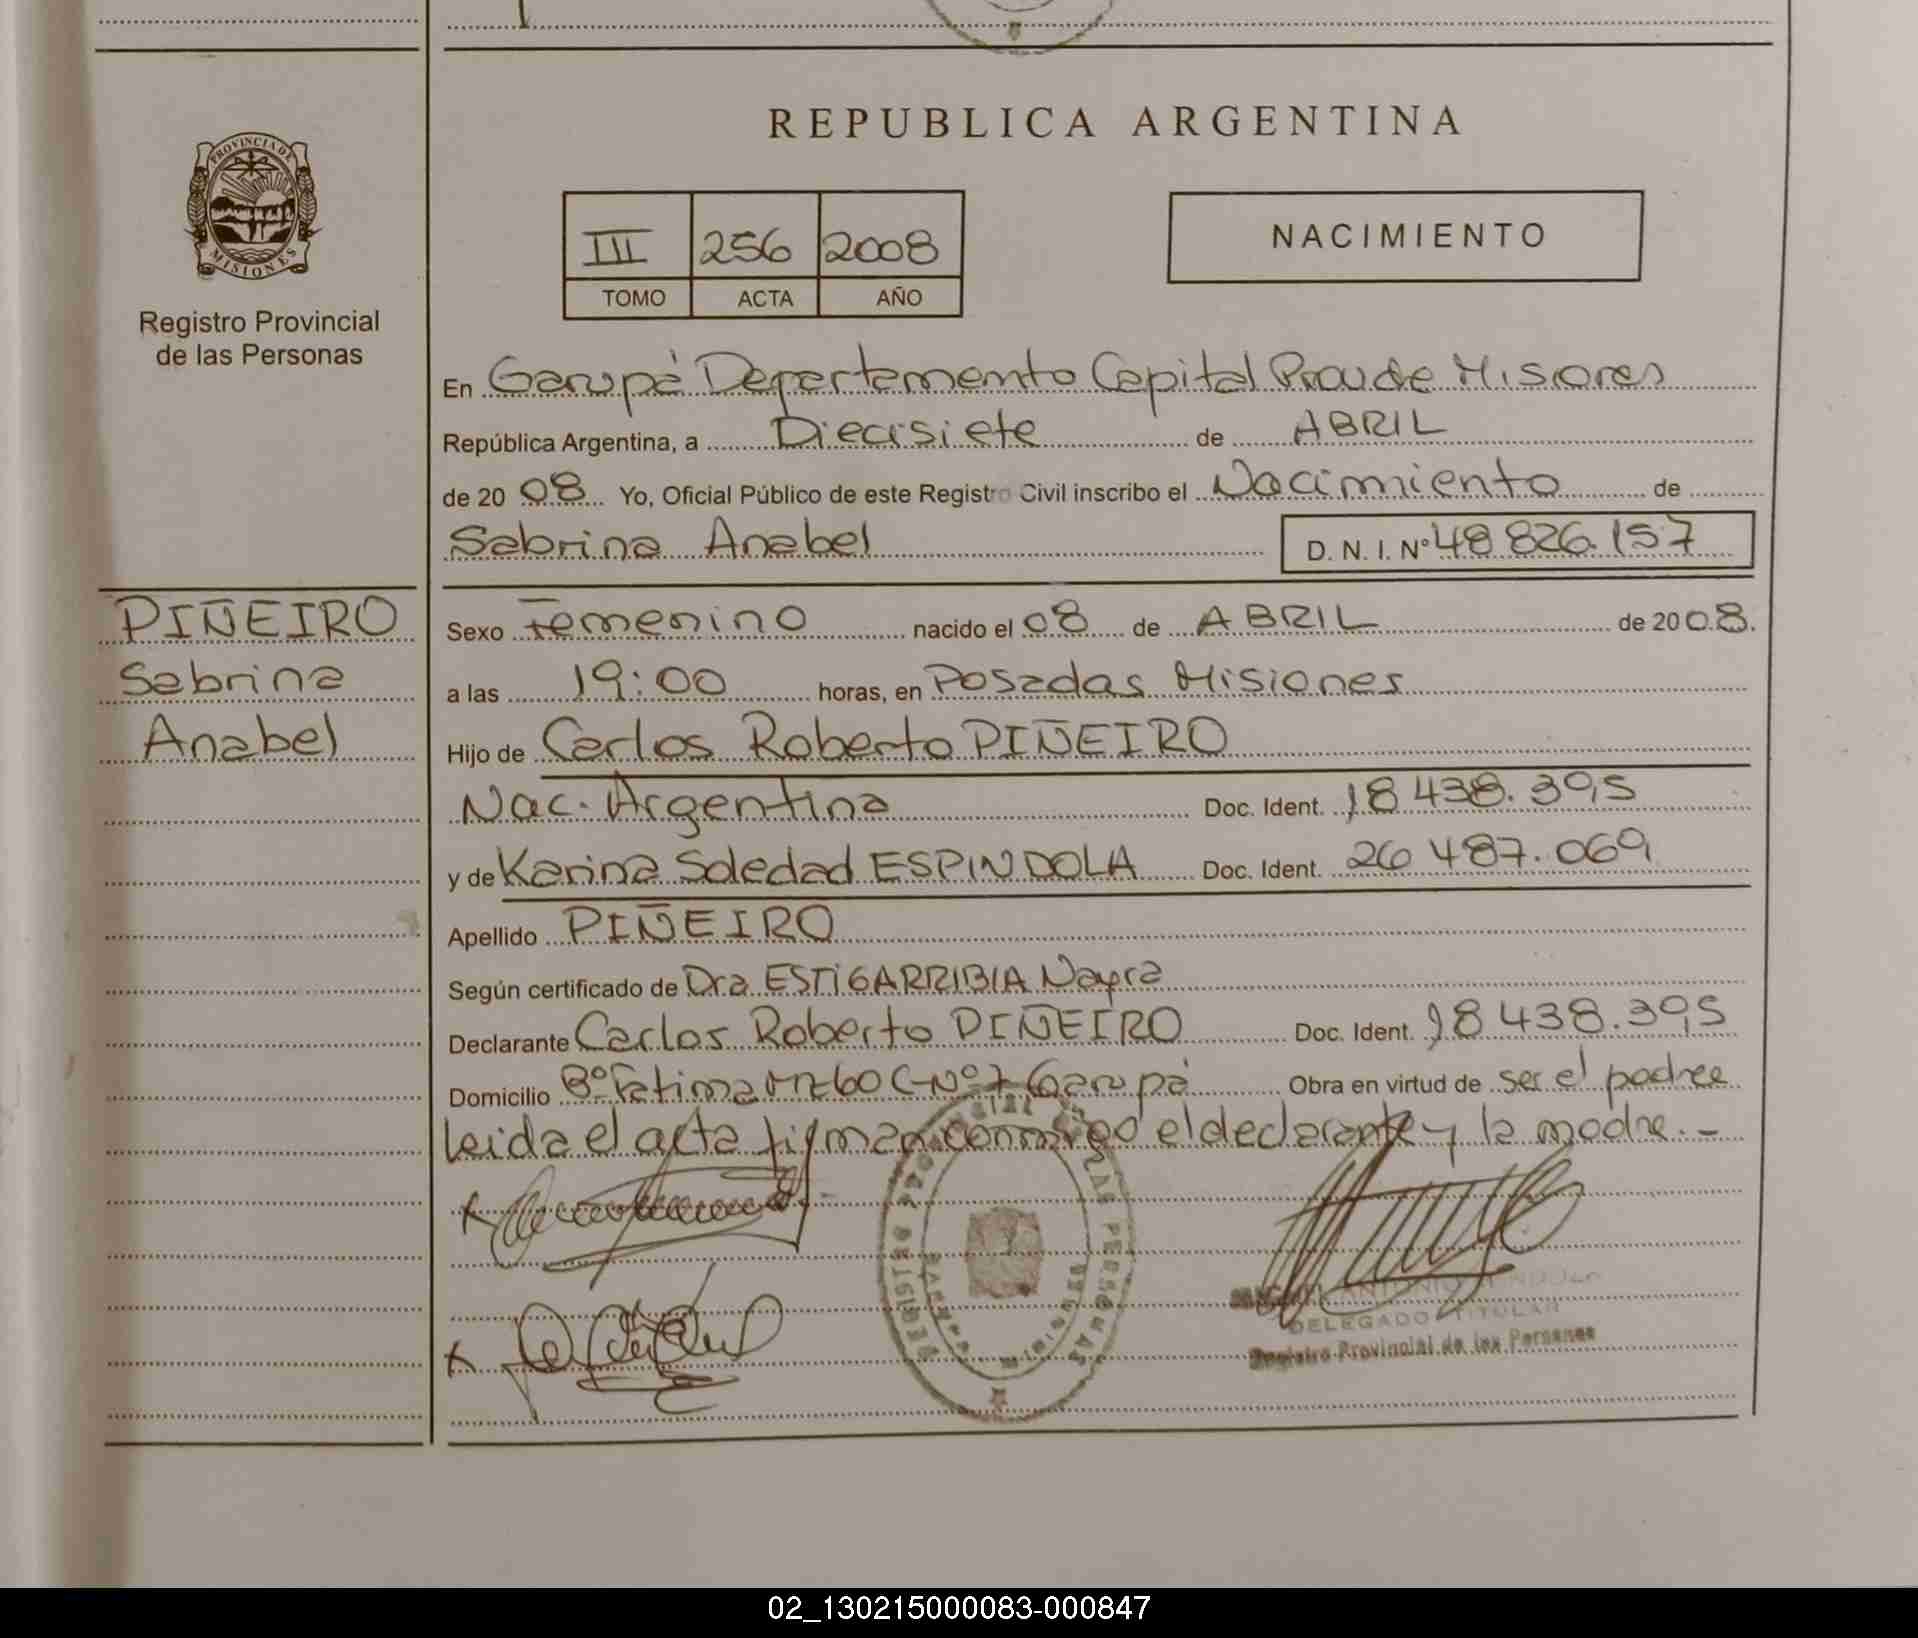 REPUBLICA ARGENTINA
PROVINCIA DE
MISIONES
Registro Provincial
de las Personas
III 256 2008
TOMO ACTA AÑO
NACIMIENTO
En Garupá Departamento Capital Prov de Misiones
República Argentina, a Diecisiete de ABRIL
de 20 08 Yo, Oficial Público de este Registro Civil inscribo el Nacimiento de
Sabrina Anabel D. N. I. Nº 48 826.157
PIÑEIRO
Sabrina
Anabel
Sexo Femenino nacido el 08 de ABRIL de 2008.
a las 19:00 horas, en Posadas Misiones
Hijo de Carlos Roberto PIÑEIRO
Nac. Argentina Doc. Ident. 18 438.395
y de Karina Soledad ESPINDOLA Doc. Ident. 26 487.069
Apellido PIÑEIRO
Según certificado de Dra ESTIGARRIBIA Nayra
Declarante Carlos Roberto PIÑEIRO Doc. Ident. 18 438.395
Domicilio Bº Fatima Mz 60 C-Nº 7 Garupá Obra en virtud de ser el padre
leida el acta firman conmigo el declarante y la madre.-
DELEGADO TITULAR
Registro Provincial de las Personas
02_130215000083-000847